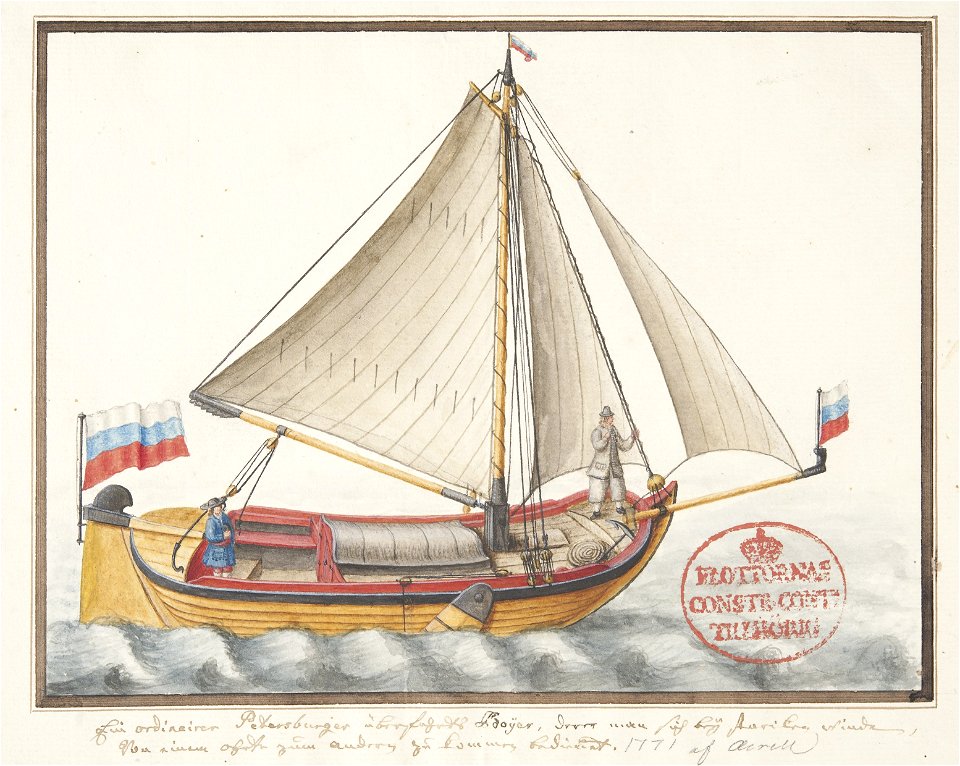 FLOTTORNAS
CONSTR-CONT
TILLHÖRIG
Ein ordinairer Petersburger überfahrts Boÿer, derer man sich beÿ starken winde,
Von einem orte zum andern zu kommen bedienet. 1771 af Acrell